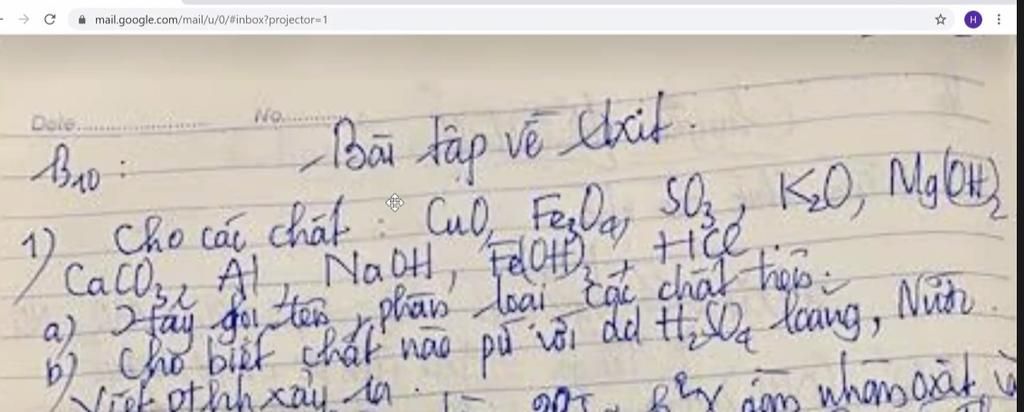 mail.google.com/mail/u/0/#inbox?projector=1
H
Date No.
B10 : Bài tập về Axit.
1) Cho các chất : CuO, Fe3O4, SO3, K2O, Mg(OH)2
CaCO3, Al, NaOH, Fe(OH)3, HCl.
a) Hãy gọi tên, phân loại các chất trên.
b) Cho biết chất nào pứ với dd H2SO4 loãng, Nước.
Viết pthh xảy ra.